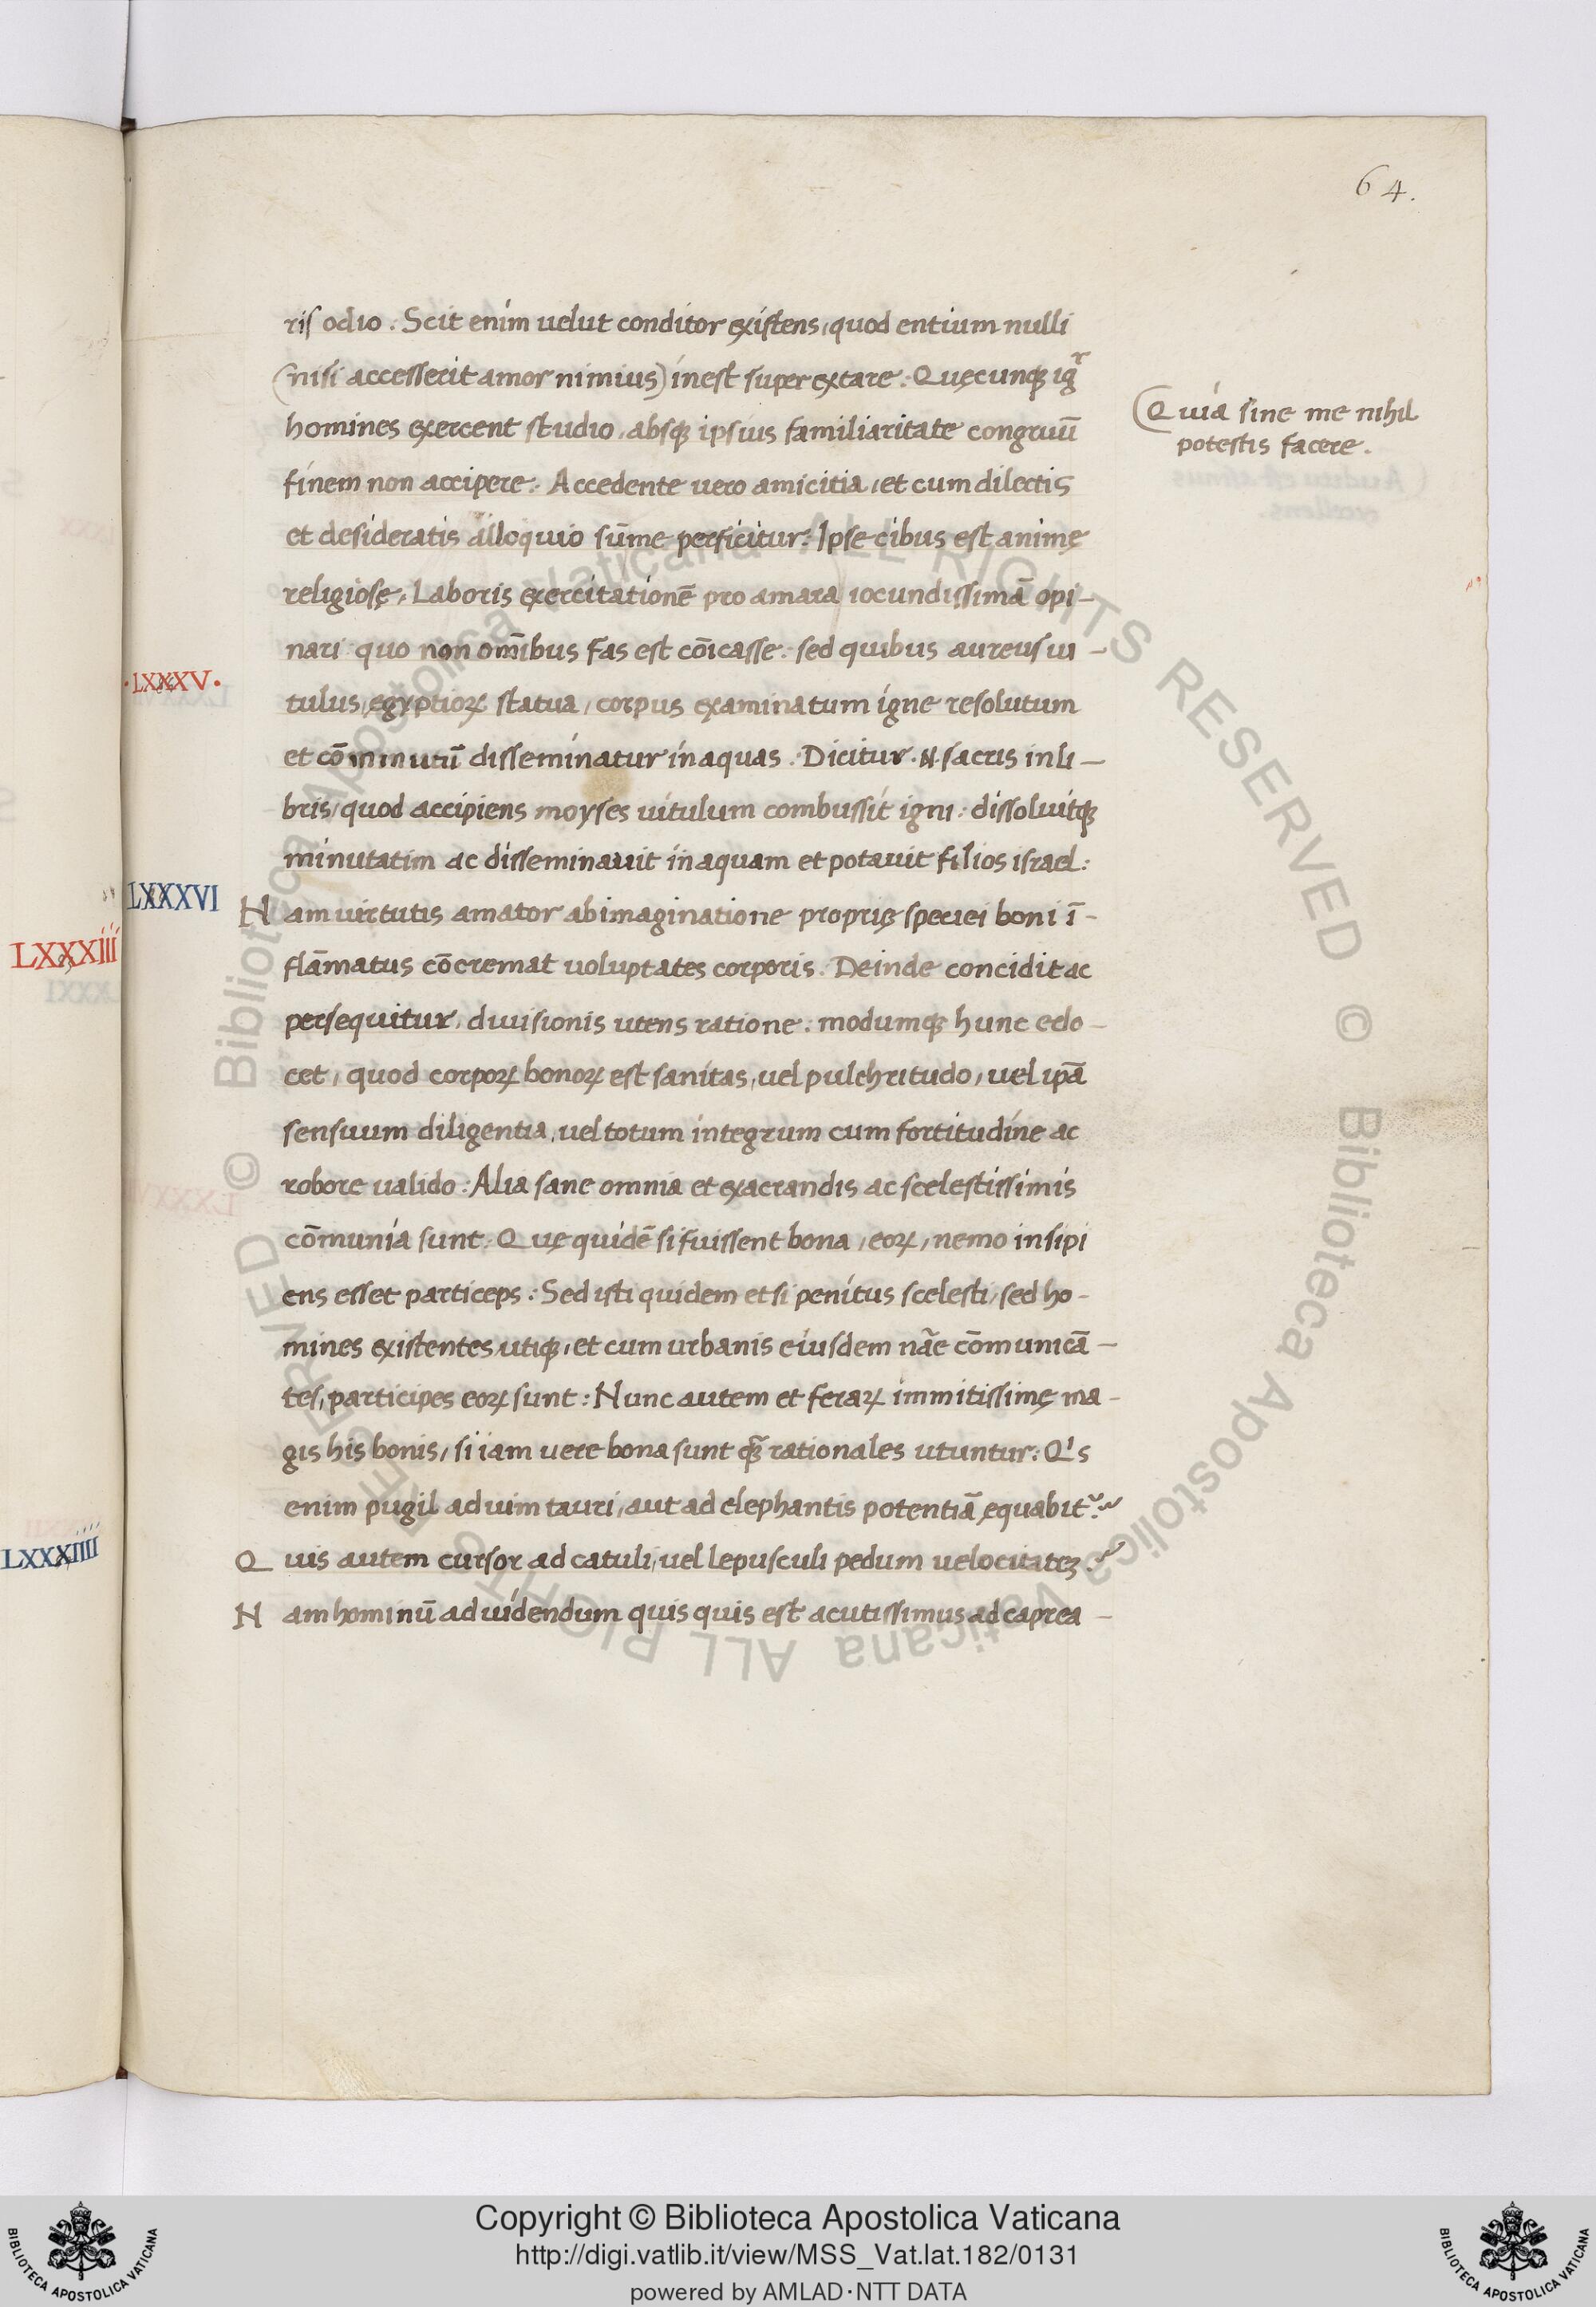 64.
risodio. Scit enim uelut conditor existens, quod entium nulli
(nisi accesserit amor nimius) inest super extare: Quęcunqꝫ igr
homines exercent studio, absqꝫ ipsius familiaritate congruū
finem non accipere: Accedente uero amicitia, et cum dilectis
et desideratis alloquio sūme perficitur: Ipse cibus est animę
religiosę, Laboris exercitationē pro amara iocundissimā opi-
nari: quo non omībus fas est cōicasse: sed quibus aureus ui-
·LXXXV·
tulus, egyptioꝝ statua, corpus examinatum igne resolutum
et cōmmutū disseminatur in aquas. Dicitur .N. sacris in li-
bris, quod accipiens moyses uitulum combussit igni: dissoluitqꝫ
minutatim ac disseminauit in aquam et potauit filios israel:
LXXXVI
Nam uirtutis amator ab imaginatione proprię speciei boni ī-
flāmatus cōcremat uoluptates corporis. Deinde concidit ac
persequitur, diuisionis utens ratione: modumqꝫ hunc edo-
cet, quod corpoꝝ bonoꝝ est sanitas, uel pulchritudo, uel ipā
sensuum diligentia, uel totum integrum cum fortitudine ac
robore ualido: Alia sane omnia et exacrandis ac scelestissimis
cōmunia sunt. Quę quidē si fuissent bona, eoꝝ, nemo insipi
ens esset particeps: Sed isti quidem et si penitus scelesti, sed ho-
mines existentes utiqꝫ, et cum urbanis eiusdem nāe cōmunicā-
tes, participes eoꝝ sunt: Nunc autem et feraꝝ immitissimę ma-
gis his bonis, si iam uere bona sunt qꝫ̄ rationales utuntur: Qis
enim pugil ad uim tauri, aut ad elephantis potentiā ęquabit:~
Quis autem cursor ad catuli, uel lepusculi pedum uelocitateꝫ:~
Nam hominū ad uidendum quis quis est acutissimus ad caprea-
(Quia sine me nihil
potestis facere.
LXXXIII
LXXXIIII
Copyright © Biblioteca Apostolica Vaticana
http://digi.vatlib.it/view/MSS_Vat.lat.182/0131
powered by AMLAD·NTT DATA
BIBLIOTECA APOSTOLICA VATICANA
BIBLIOTECA APOSTOLICA VATICANA
© Biblioteca Apostolica Vaticana ALL RIGHTS RESERVED
© Biblioteca Apostolica Vaticana ALL RIGHTS RESERVED